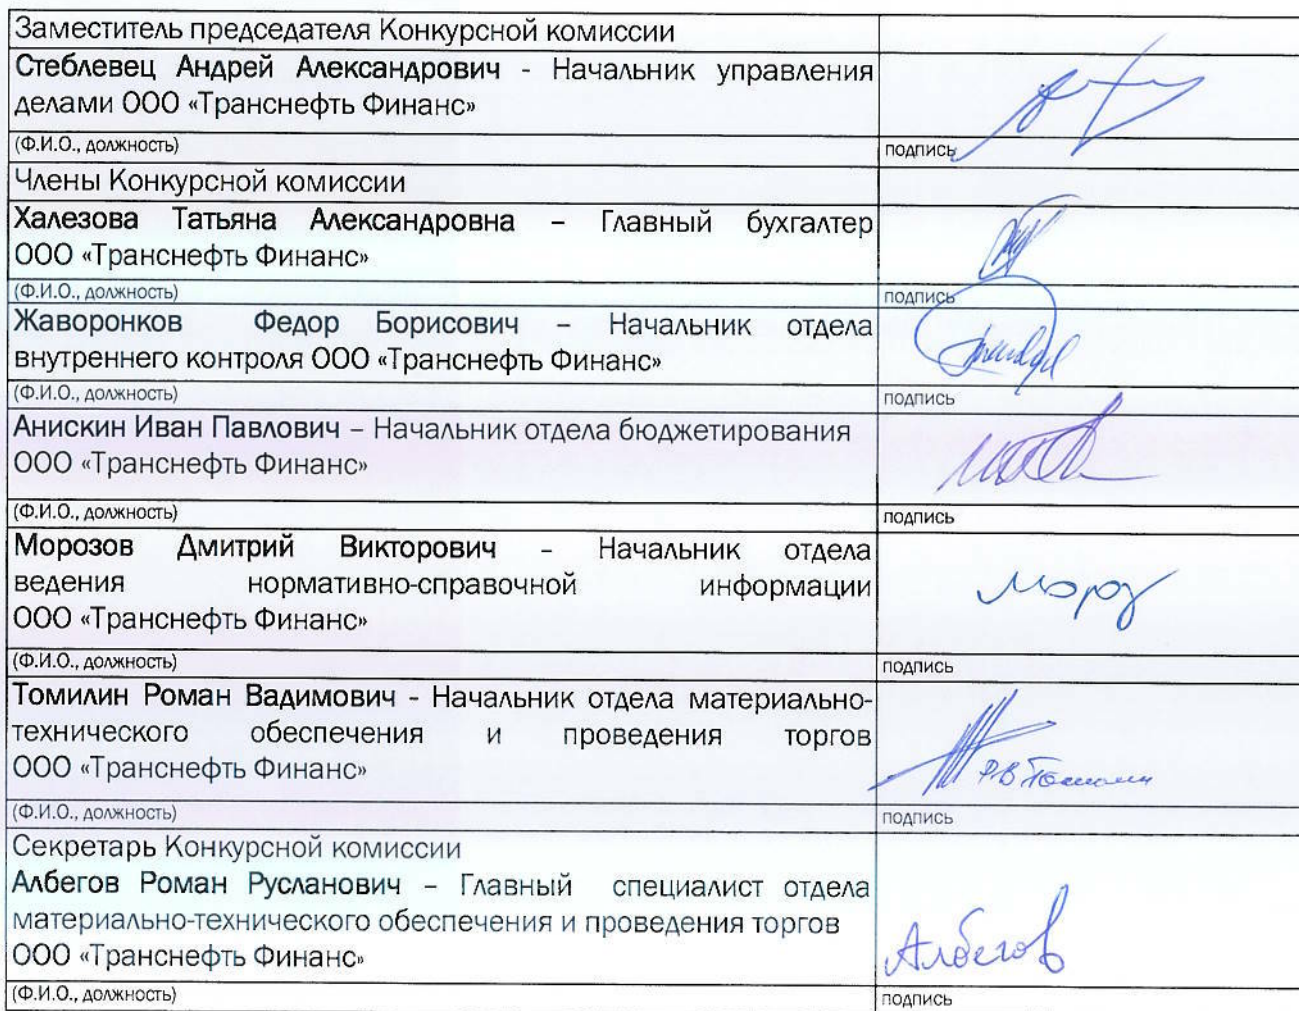 Заместитель председателя Конкурсной комиссии
Стеблевец Андрей Александрович - Начальник управления
делами ООО «Транснефть Финанс»
(Ф.И.О., должность)
подпись
Члены Конкурсной комиссии
Халезова Татьяна Александровна – Главный бухгалтер
ООО «Транснефть Финанс»
(Ф.И.О., должность)
подпись
Жаворонков Федор Борисович – Начальник отдела
внутреннего контроля ООО «Транснефть Финанс»
(Ф.И.О., должность)
подпись
Анискин Иван Павлович – Начальник отдела бюджетирования
ООО «Транснефть Финанс»
(Ф.И.О., должность)
подпись
Морозов Дмитрий Викторович – Начальник отдела
ведения нормативно-справочной информации
ООО «Транснефть Финанс»
Мороз
(Ф.И.О., должность)
подпись
Томилин Роман Вадимович - Начальник отдела материально-
технического обеспечения и проведения торгов
ООО «Транснефть Финанс»
Р.В Томилин
(Ф.И.О., должность)
подпись
Секретарь Конкурсной комиссии
Албегов Роман Русланович – Главный специалист отдела
материально-технического обеспечения и проведения торгов
ООО «Транснефть Финанс»
Албегов
(Ф.И.О., должность)
подпись